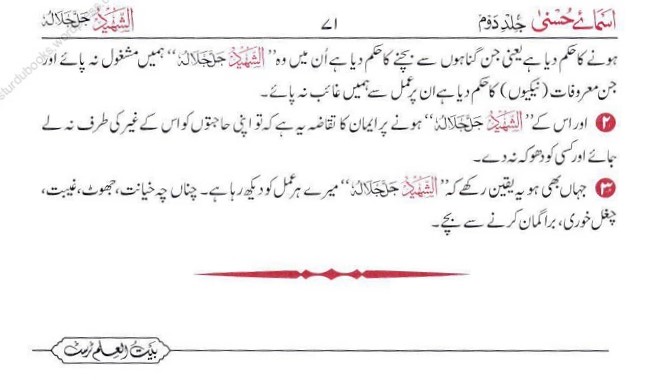 اسمائے حُسنیٰ جُلد دوم ۷۱ الشَّهِيْدُ جَلَّ جَلَالُهٗ
ہونے کا حکم دیا ہے یعنی جن گناہوں سے بچنے کا حکم دیا ہے اُن میں وہ ”الشَّهِيْدُ جَلَّ جَلَالُهٗ“ ہمیں مشغول نہ پائے اور
جن معروفات (نیکیوں) کا حکم دیا ہے ان پر عمل سے ہمیں غائب نہ پائے۔
۲ اور اس کے ”الشَّهِيْدُ جَلَّ جَلَالُهٗ“ ہونے پر ایمان کا تقاضہ یہ ہے کہ تو اپنی حاجتوں کو اس کے غیر کی طرف نہ لے
جائے اور کسی کو دھوکہ نہ دے۔
۳ جہاں بھی ہو یہ یقین رکھے کہ ”الشَّهِيْدُ جَلَّ جَلَالُهٗ“ میرے ہر عمل کو دیکھ رہا ہے۔ چناں چہ خیانت، جھوٹ، غیبت،
چغل خوری، برا گمان کرنے سے بچے۔
بیت العلم ٹرسٹ